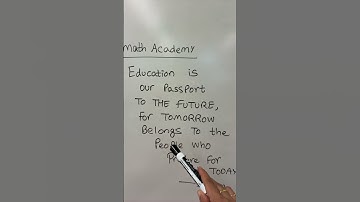 Math Academy
Education is
our Passport
To THE FUTURE,
for TOMORROW
Belongs To the
People who
Prepare for
TODAY